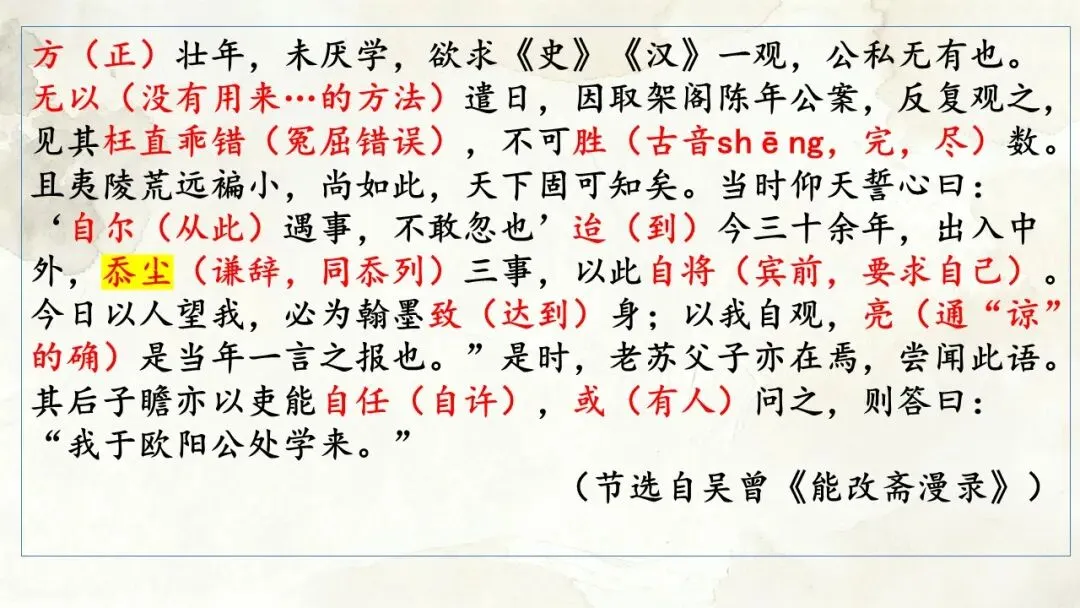 方（正）壮年，未厌学，欲求《史》《汉》一观，公私无有也。
无以（没有用来…的方法）遣日，因取架阁陈年公案，反复观之，
见其枉直乖错（冤屈错误），不可胜（古音shēng，完，尽）数。
且夷陵荒远褊小，尚如此，天下固可知矣。当时仰天誓心曰：
‘自尔（从此）遇事，不敢忽也’迨（到）今三十余年，出入中
外，忝尘（谦辞，同忝列）三事，以此自将（宾前，要求自己）。
今日以人望我，必为翰墨致（达到）身；以我自观，亮（通“谅”
的确）是当年一言之报也。”是时，老苏父子亦在焉，尝闻此语。
其后子瞻亦以吏能自任（自许），或（有人）问之，则答曰：
“我于欧阳公处学来。”
（节选自吴曾《能改斋漫录》）